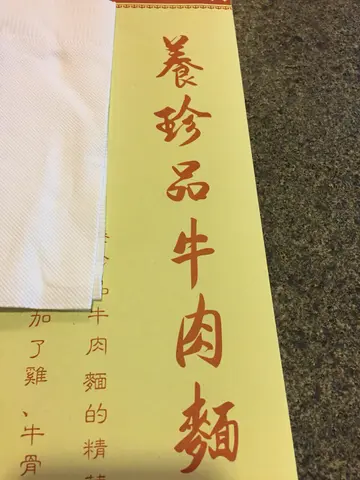 養珍品牛肉麵
養珍品牛肉麵的精華
加了雞、牛骨